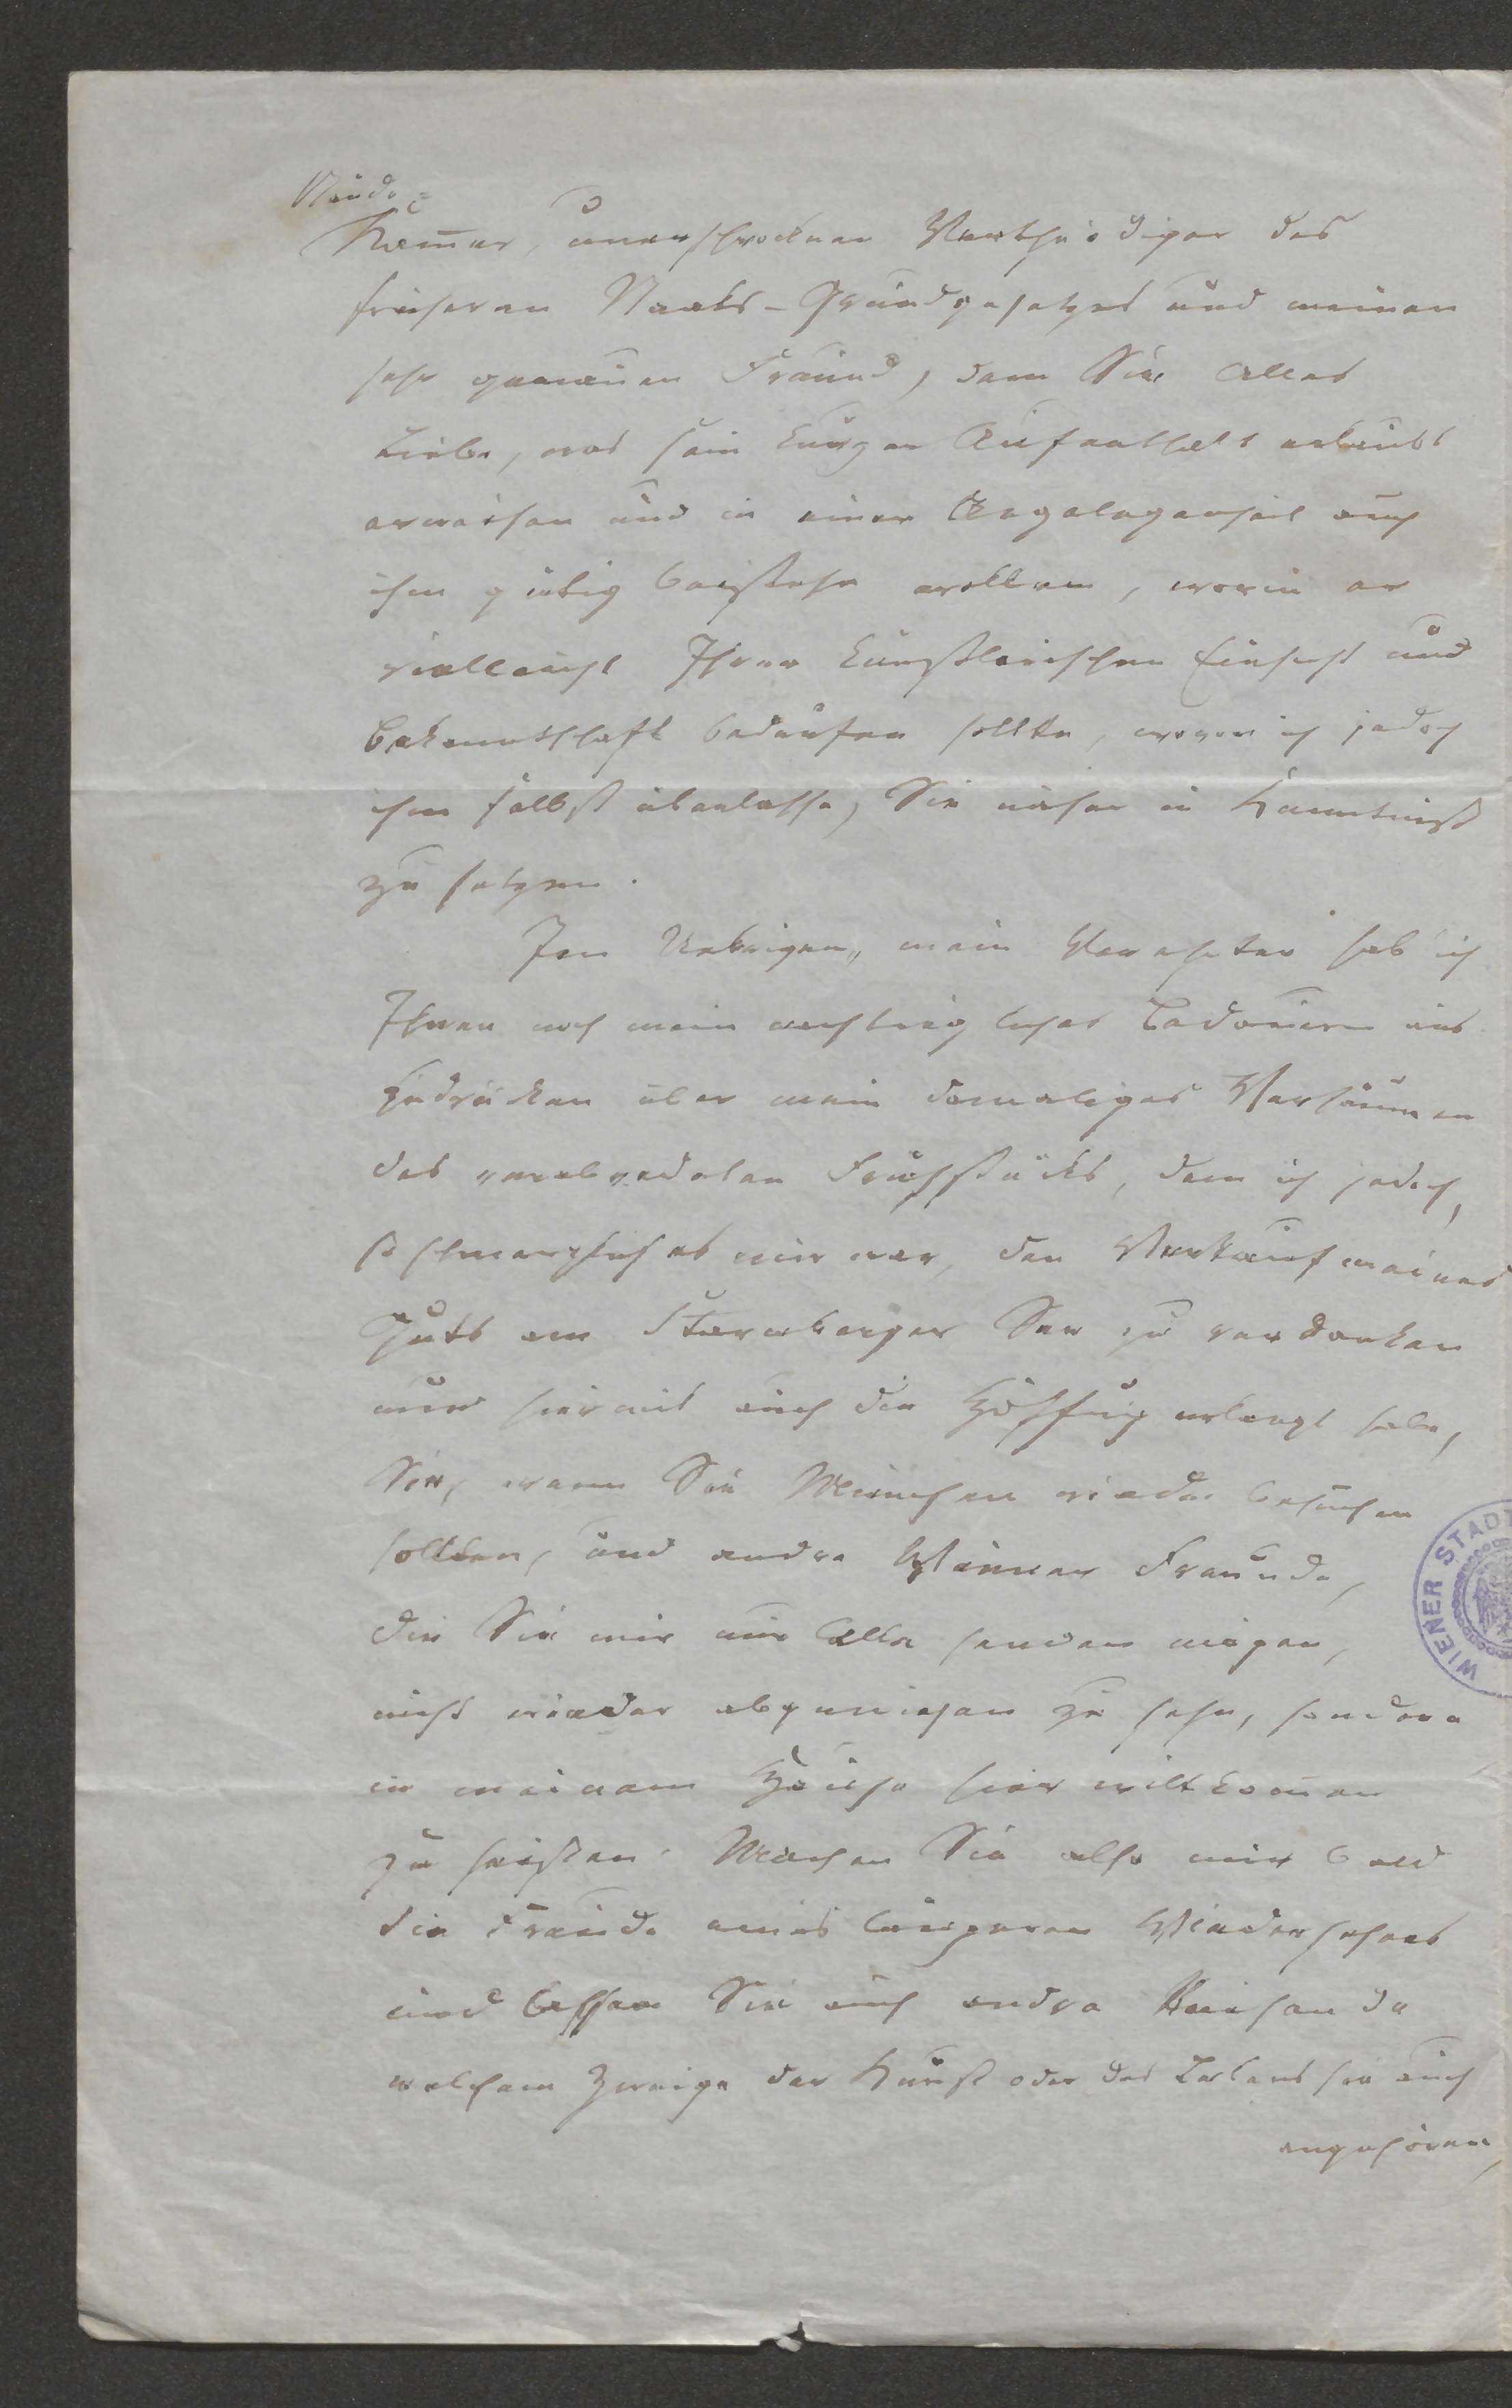 Stände=
Kam̄er, unerschrocknen Vertheidiger des
früheren Staats-Grundgesetzes und meinen
sehr genauen Freund, dem Sie Alles
Liebe, was sein kurzer Aufenthalt erlaubt
erweisen und in einer Angelegenheit auch
ihm gütig beistehn wollen, worin er
vielleicht Ihrer künstlerischen Einsicht und
Bekanntschaft bedürfen sollte, wovon ich jedoch
ihm selbst überlasse, Sie näher in Kenntniß
zu setzen.
Im Uebrigen, mein Verehrter hab' ich
Ihnen noch mein nachträgliches Bedauern aus
zudrücken über mein damaliges Versäumen
des verabredeten Frühstücks, dem ich jedoch,
so schmerzlich es mir war, den Verkauf meines
Guts am Starnberger See zu verdanken
und hiermit auch die Hoffnug erlangt habe,
Sie, wenn Sie München wieder besuchen
sollten, und andre Wiener Freunde,
die Sie mir nur Alle senden mögen,
nicht wieder abgewiesen zu sehn, sondern
in meinem Hause hier willkom̄en
zu heißen. Machen Sie also mir bald
die Freude eines längeren Wiedersehens
und lassen Sie auch andre Reisende
welchem Zweige der Kunst oder des Lebens sie auch
angehören,
WIENER STADT